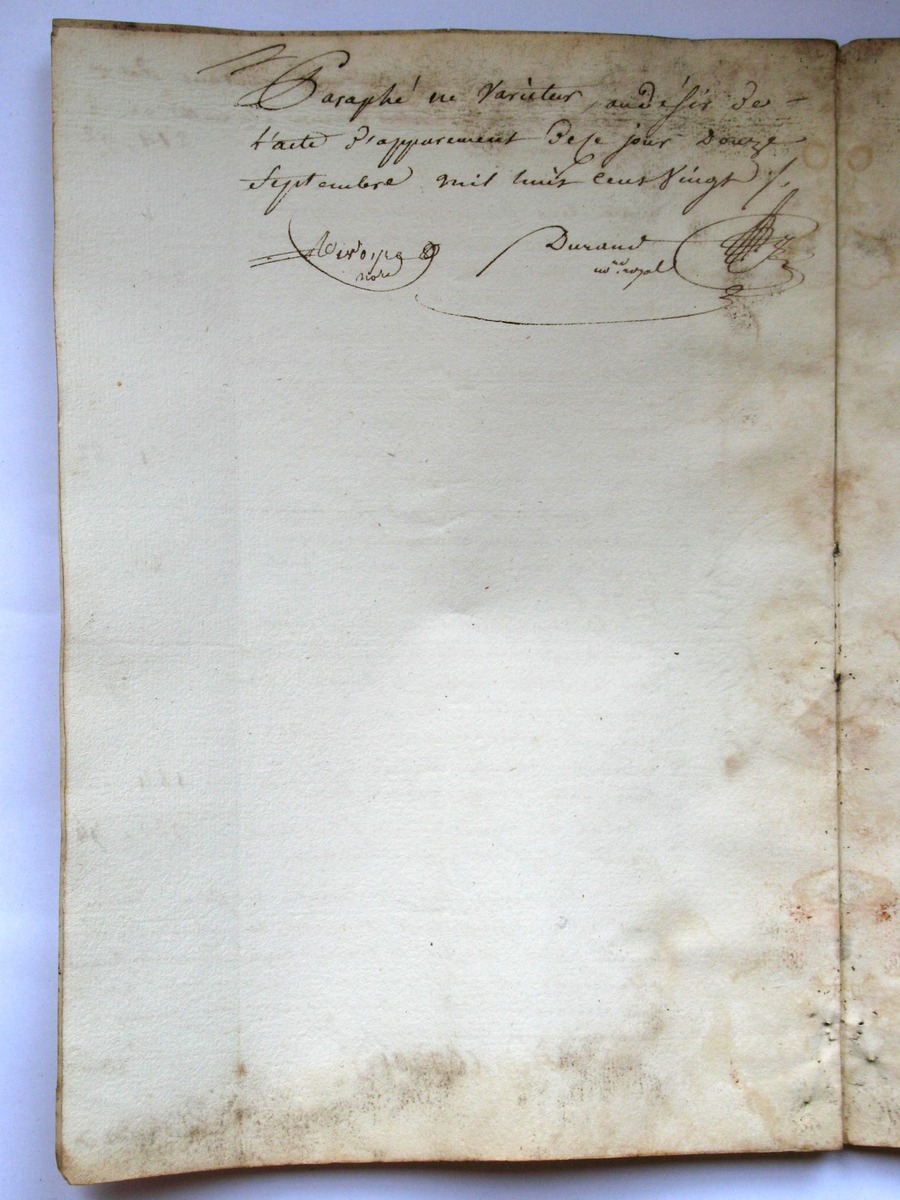 Paraphé ne Varietur, au désir de
l'acte d'appurement de ce jour Douze
Septembre mil huit cent Vingt /.
Durand
no.re royal
nore